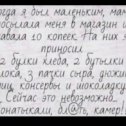 гда я был маленьким, мам
осылала меня в магазин и
авала 10 копеек. На них я
приносил
2 булки хлеба, 2 бутылки
лока, 3 пачки сыра, дюжи
яиц, консервы и шоколадку.
Сейчас это невозможно...
онатыкали, блять, камер!